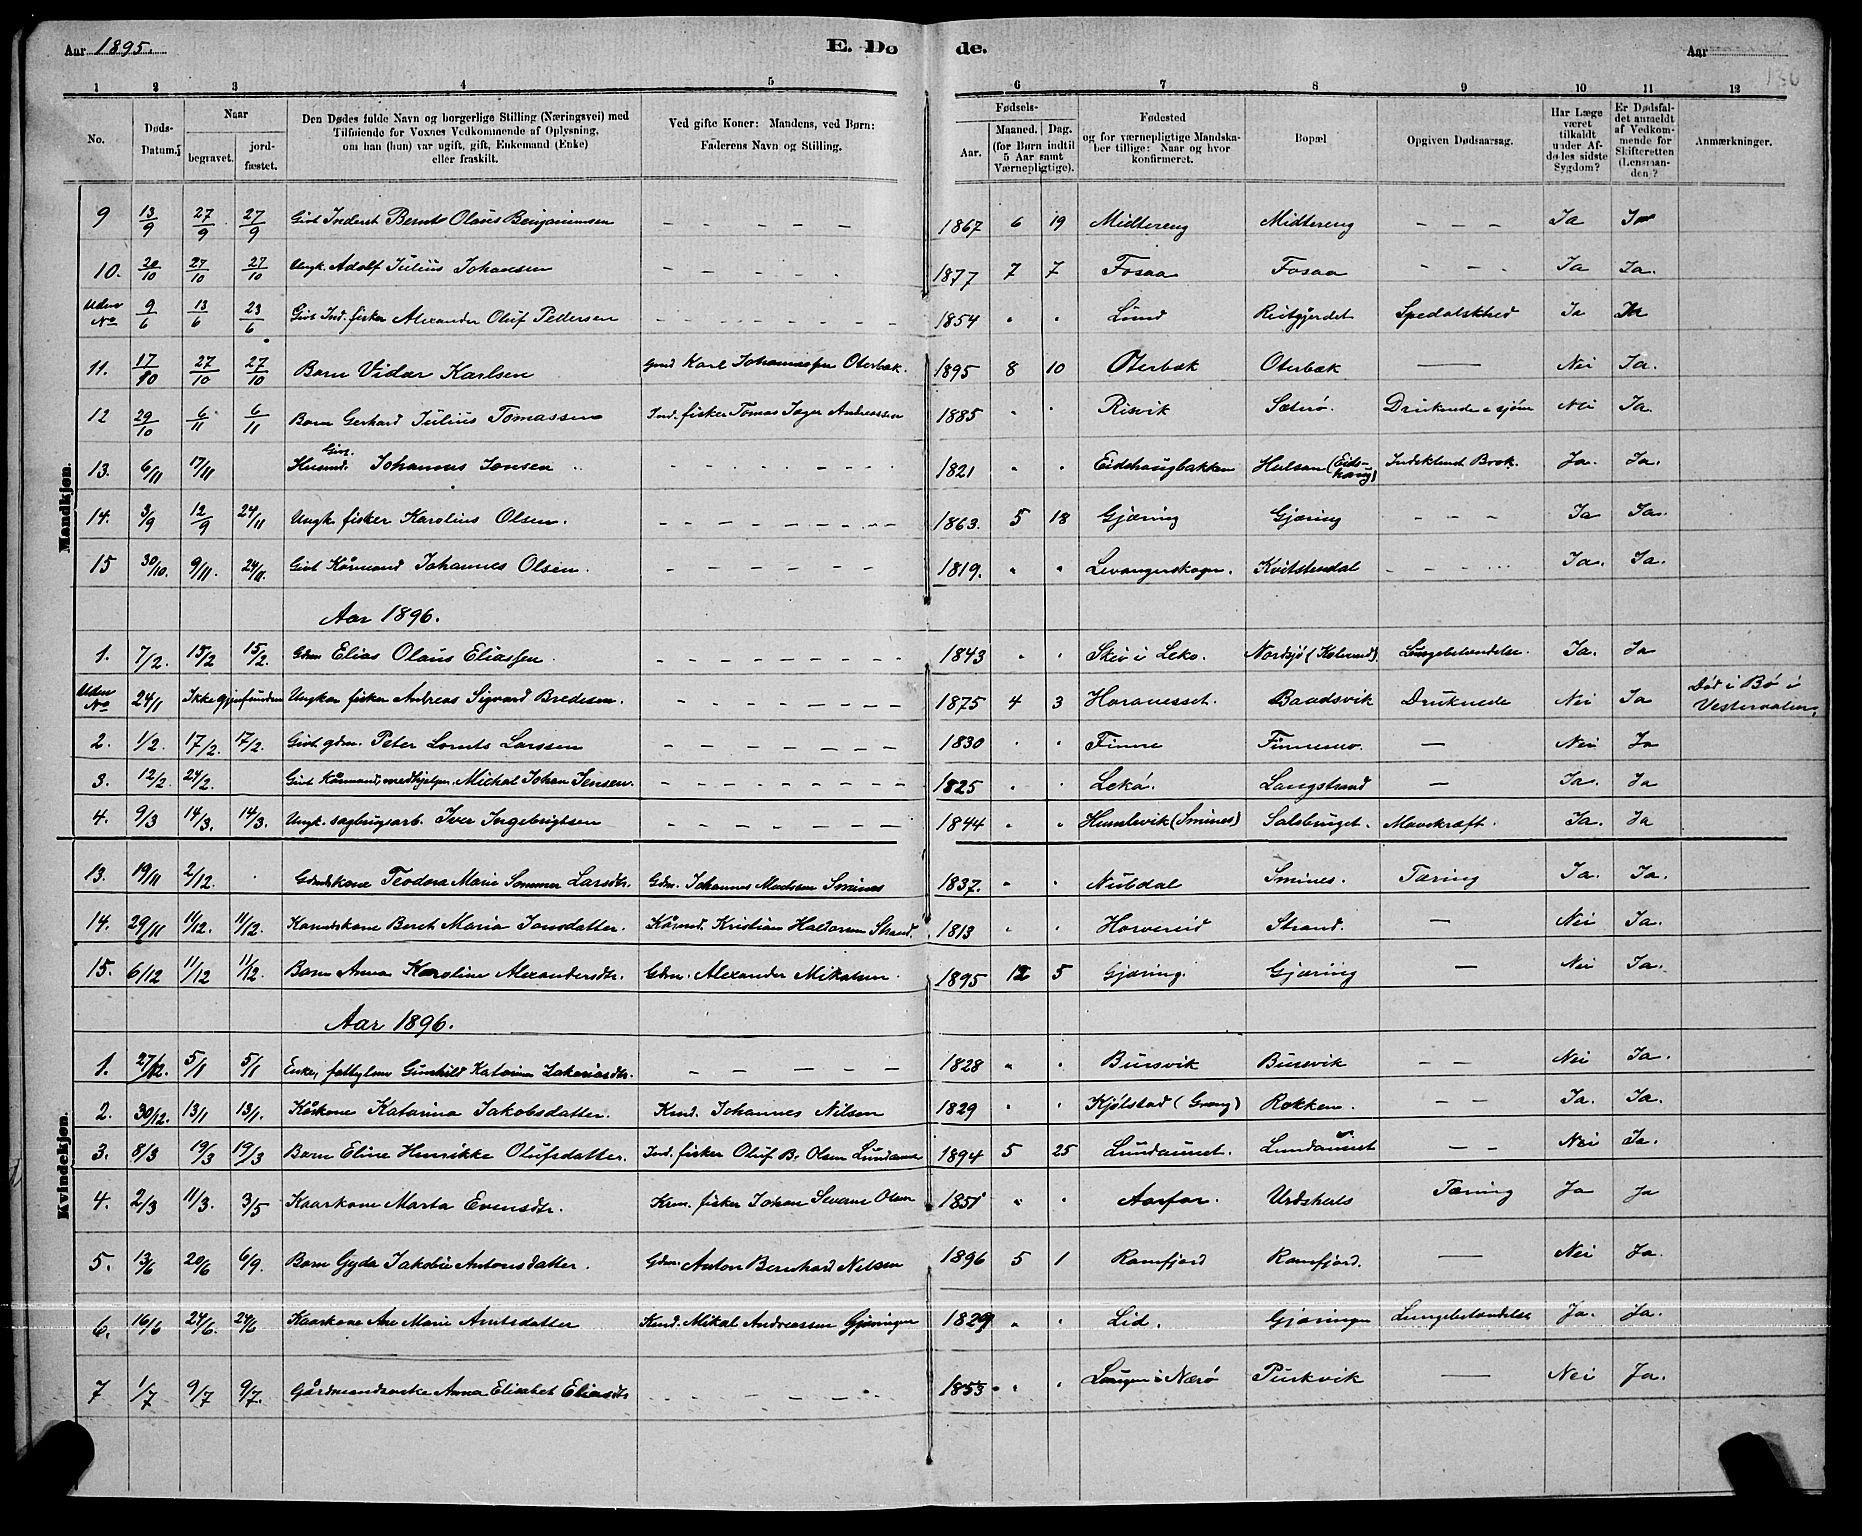 Aar 1895. E. Døde. Aar
136
1 2 3 4 5 6 7 8 9 10 11 12
No. Døds-Datum. Naar begravet. jordfæstet. Den Dødes fulde Navn og borgerlige Stilling (Næringsvei) med Tilføiende for Voxnes Vedkommende af Oplysning, om han (hun) var ugift, gift, Enkemand (Enke) eller fraskilt. Ved gifte Koner: Mandens, ved Børn: Faderens Navn og Stilling. Fødsels- Aar. Maaned. Dag. (for Børn indtil 5 Aar samt Værnepligtige). Fødested og for værnepligtige Mandskaber tillige: Naar og hvor konfirmeret. Bopæl Opgiven Dødsaarsag. Har Læge været tilkaldt under Afdødes sidste Sygdom? Er Dødsfaldet anmeldt af Vedkommende for Skifteretten (Lensmanden)? Anmærkninger.
Mandkjøn.
9 13/9 27/9 27/9 Givt Inderst Bernt Olaus Benjaminsen - - - - - 1867 6 19 Midtereng Midtereng - - - Ja Ja
10. 20/10 27/10 27/10 Ungk. Adolf Julius Johansen - - - - - 1877 7 7 Fosaa Fosaa - - - Ja Ja.
Uden No 9/6 13/6 23/6 Givt Ind. fisker Alexander Oluf Pettersen - - - - - - - - 1854 " " Lund Reitgjerdet Spedalskhed Ja Ja
11. 17/10 27/10 27/10 Barn Vidar Karlsen Gmd Karl Johannessen Oterbæk. 1895 8 10 Oterbæk Oterbæk — Nei Ja.
12 29/10 6/11 6/11 Barn Gerhard Julius Tomassen Ind. fisker Tomas Jager Andreassen 1885 " " Risvik Sæterø. Druknede i sjøen Nei Ja
13. 6/11 17/11 Givt Husmd. Johannes Jonsen - - - - - - - 1821 " " Eidshaugbakken Hulsan (Eidshaug) Indeklemt Brok. Ja. Ja.
14. 3/9 12/9 24/11 Ungk. fisker Karolius Olsen. - - - - - - - - 1863. 5 18 Gjæring Gjæring - - - Ja Ja.
15 30/10. 9/11. 24/11. Givt Kårmand Johannes Olsen. - - - - - - - 1819. " " Levangerskogn. Kvitstendal - - - Ja. Ja.
Aar 1896.
1. 7/2. 15/2 15/2. Gdm Elias Olaus Eliassen. - - - - - - - 1843 " " Skei i Leko. Nordsjø (Kolvered). Lungebetændelse. Ja. Ja
Uden No 24/1 Ikke gjenfunden Ungkar fisker Andreas Sigvard Bredesen. - - - - - - - 1875 4 3 Horsnesset. Baadsvik Druknede Nei Ja Død i Bø i Vesteraalen.
2. 1/2. 17/2. 17/2. Givt gdm. Peter Lornts Larssen - - - - - - - 1830 " " Finne Finnemo. — Nei Ja
3. 12/2. 24/2. Givt Kårmand, medhjelper Michal Johan Jensen. - - - - - - - 1825 " " Leka. Langstrand — Ja. Ja
4. 9/3 14/3. 14/3. Ungk. sagbrugsarb. Iver Ingebrigtsen - - - - - - - 1844 " " Humlevik (Smines) Salsbruget. Mavekræft. Ja. Ja
Kvindekjøn.
13. 19/11 2/12. Gdmdskone Teodora Marie Sommer Larsdtr. Gdm. Johannes Madsen Smines 1837. " " Nubdal Smines. Tæring Ja. Ja.
14. 29/11 11/12. 11/12. Kamdskone Beret Maria Jonsdatter. Kårmd. Kristian Haldorsen Strand. 1813 " " Horvereid Strand. — Nei Ja.
15. 6/12 11/12 11/12. Barn Anna Karoline Alexandersdtr. Gdm. Alexander Mikalsen. 1895 12 5 Gjæring. Gjæring — Nei Ja.
Aar 1896.
1. 27/12. 5/1 5/1 Enke, fattiglem Gunhild Katarina Zakariasdtr. - - - - - 1828 " " Bursvik Bursvik - - Nei Ja.
2. 30/12. 13/1 13/1. Kårkone Katarina Jakobsdatter. Kmd. Johannes Nilsen 1829 " " Kjølstad (Grong) Rokken. - - Ja. Ja.
3. 8/3 19/3 19/3 Barn Eline Henrikke Olufsdatter. Ind. fisker Oluf B. Olsen Lundaune 1894 5 25 Lundaunet. Lundaunet - - Nei Ja.
4. 2/3 11/3. 3/5 Kaarkone Marta Evensdtr. Krm. fisker Johan Severin Olsen 1851 " " Aarfor. Urdskels Tæring Ja Ja
5. 13/6 20/6 6/9. Barn Gyda Jakobie Antonsdatter. Gdm. Anton Bernhard Nilsen 1896 5 1 Ramfjord Ramfjord. — Nei Ja.
6. 16/6 24/6. 24/6 Kaarkone Ane Marie Arntsdatter Kmd. Mikal Andreassen Gjæringen 1829 " " Lid. Gjæringen Lungebetændelse Ja. Ja.
7 1/7 9/7 9/7. Gårdmandsenke Anna Elisabet Eliasdtr - - - - - - - 1853 " " Laugen i Nærø Purkvik — Nei Ja.